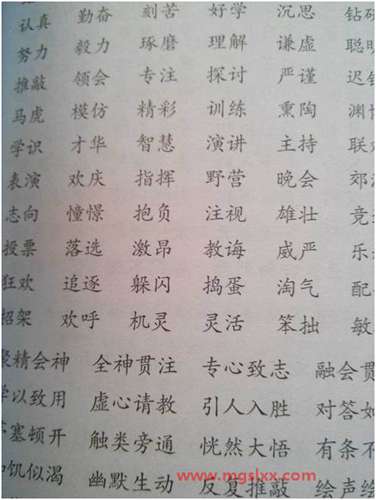 认真 勤奋 刻苦 好学 沉思 钻研
努力 毅力 琢磨 理解 谦虚 聪明
推敲 领会 专注 探讨 严谨 迟
马虎 模仿 精彩 训练 熏陶 渊博
学识 才华 智慧 演讲 主持 联
表演 欢庆 指挥 野营 晚会 郊
志向 憧憬 抱负 注视 雄壮 竞
投票 落选 激昂 教诲 威严 乐
狂欢 追逐 躲闪 捣蛋 淘气 配
招架 欢呼 机灵 灵活 笨拙 敏
聚精会神 全神贯注 专心致志 融会贯
学以致用 虚心请教 引人入胜 对答如
茅塞顿开 触类旁通 恍然大悟 有条不
饥似渴 幽默生动 反复推敲 绘声绘
www.mgslxx.com